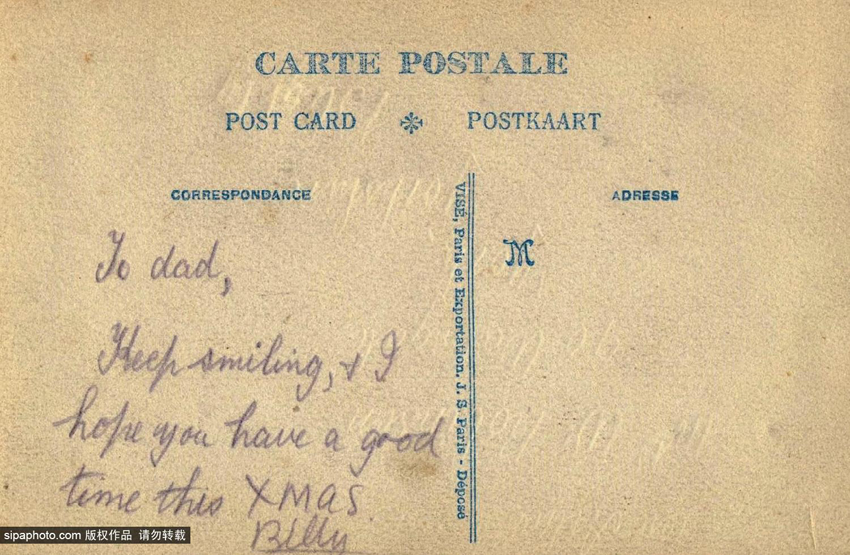 CARTE POSTALE
POST CARD ✻ POSTKAART
CORRESPONDANCE
ADRESSE
To dad,
Keep smiling, & I
hope you have a good
time this XMAS.
Billy
VISÉ, Paris et Exportation. J. S Paris - Déposé
M
sipaphoto.com 版权作品 请勿转载